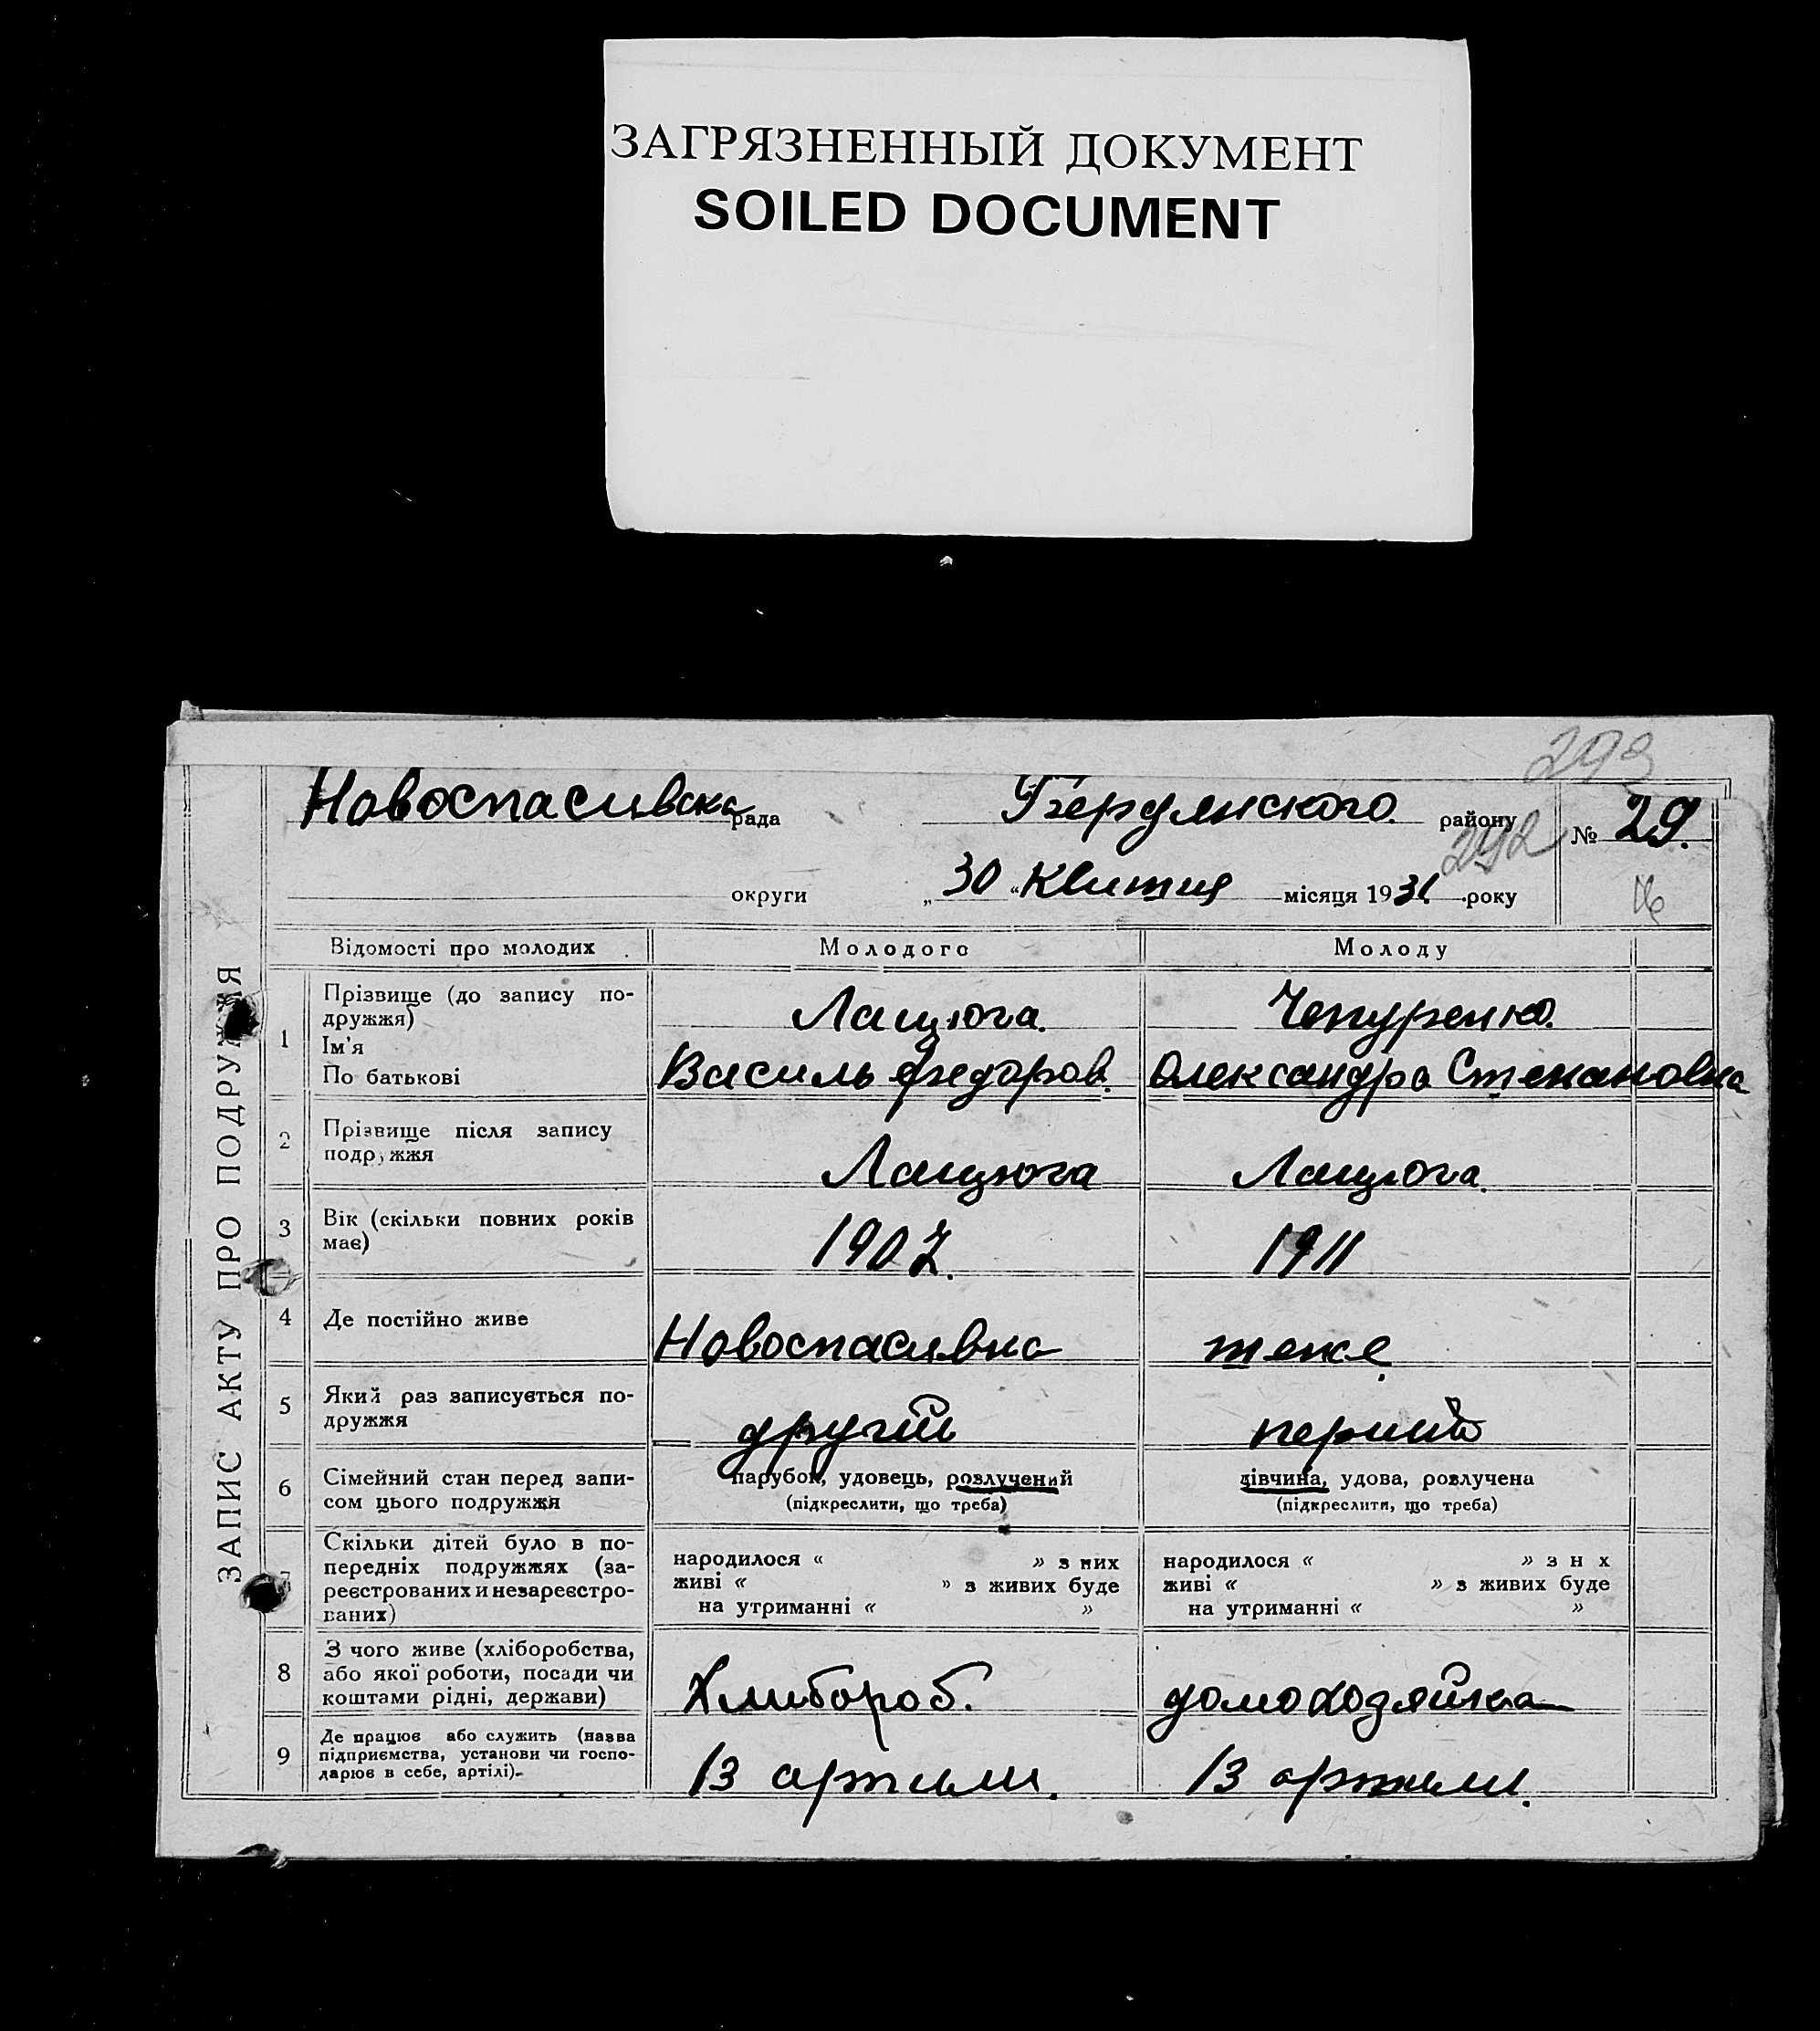 ЗАГРЯЗНЕННЫЙ ДОКУМЕНТ
SOILED DOCUMENT
293
Новоспасивска рада Бердянского району № 29.
292
округи „30“ Квитня місяця 1931 року
ЗАПИС АКТУ ПРО ПОДРУЖЖЯ
Відомості про молодих Молодого Молоду
1 Прізвище (до запису по-
дружжя) Лацюга. Чепуренко.
Ім'я
По батькові Василь Федоров. Олександра Степановна
2 Прізвище після запису
подружжя Лацюга Лацюга.
3 Вік (скільки повних років
має) 1907. 1911
4 Де постійно живе Новоспасивка теже.
5 Який раз записується по-
дружжя другий перший
6 Сімейний стан перед запи-
сом цього подружжя
парубок, удовець, розлучений дівчина, удова, розлучена
(підкреслити, що треба) (підкреслити, що треба)
7 Скільки дітей було в по-
передніх подружжях (за-
реєстрованих и незареєстро-
ваних)
народилося « » з них народилося « » з н х
живі « » з живих буде живі « » з живих буде
на утриманні « » на утриманні « »
8 З чого живе (хліборобства,
або якої роботи, посади чи
коштами рідні, держави) Хлибороб. домохозяйка
9 Де працює або служить (назва
підприємства, установи чи госпо-
дарює в себе, артілі). В артили. В артили.